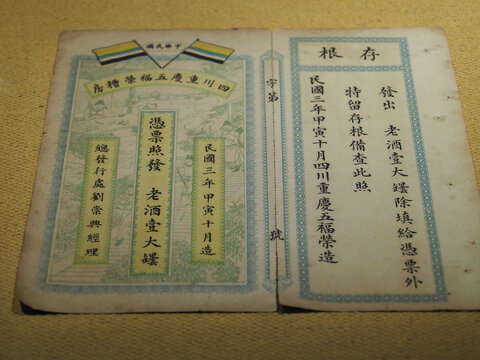 存根
發出 老酒壹大罎除填給憑票外
特留存根備查此照
民國三年甲寅十月四川重慶五福榮造
字第 號
中華民國
四川重慶五福榮糟房
民國三年甲寅十月造
憑票照發 老酒壹大罎
總發行處劉榮興經理